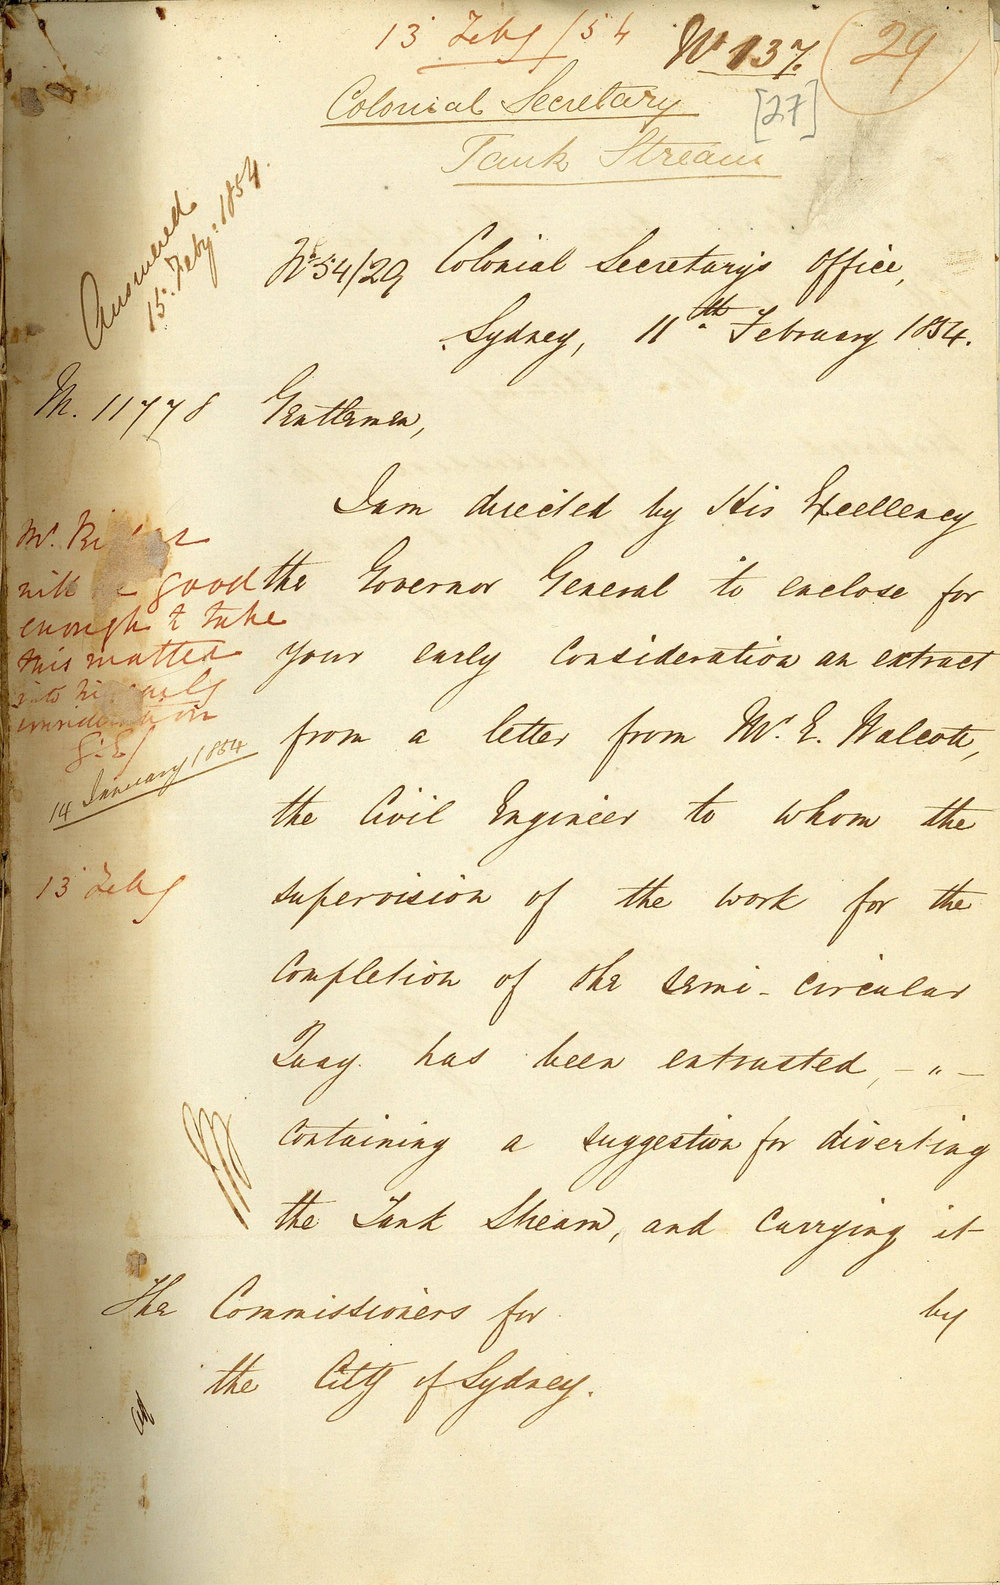 13 Feby /54
No 137.
29
Colonial Secretary
[27]
Tank Stream
Answered
15. Feby. 1854.
No 54/29 Colonial Secretary's Office,
Sydney, 11th February 1854.
M. 11778
Gentlemen,
I am directed by His Excellency
the Governor General to enclose for
your early consideration an extract
from a letter from Mr. E. Walcott,
the Civil Engineer to whom the
supervision of the work for the
completion of the semi-circular
Quay has been entrusted, — " —
containing a suggestion for diverting
the Tank Stream, and carrying it
by
The Commissioners for
the City of Sydney.
Mr.
will be good
enough to take
this matter
into his early
consideration
14 January 1854
13 Feby